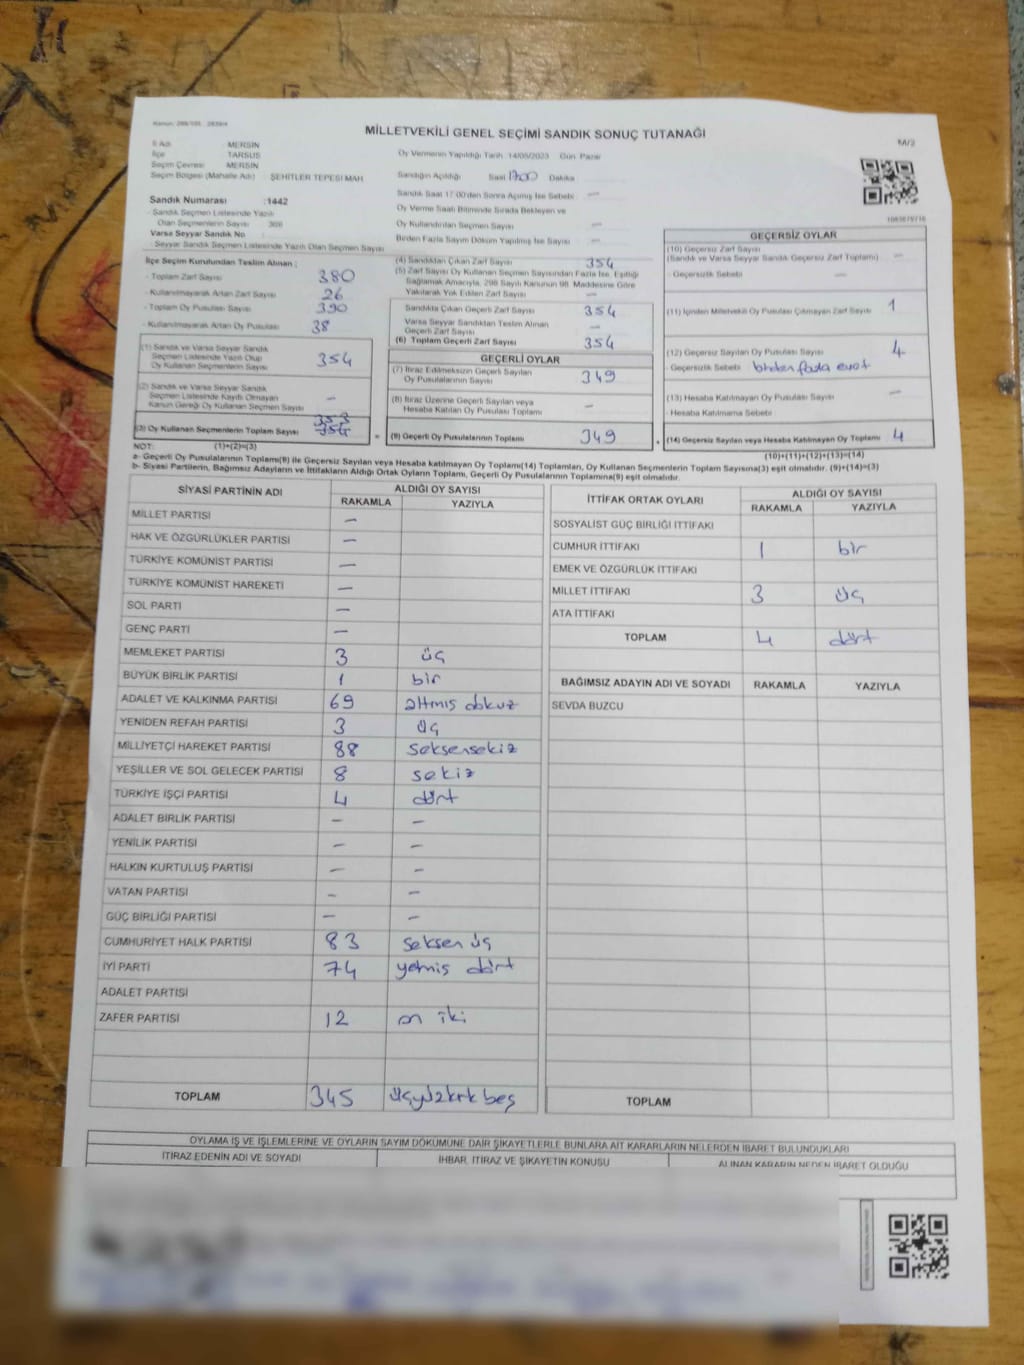 MİLLETVEKİLİ GENEL SEÇİMİ SANDIK SONUÇ TUTANAĞI
İl Adı MERSİN
İlçe TARSUS
Seçim Çevresi MERSİN
Seçim Bölgesi (Mahalle Adı) ŞEHİTLER TEPESİ MAH.
Oy Vermenin Yapıldığı Tarih 14/05/2023 Gün Pazar
Sandığın Açıldığı Saat 1700 Dakika
Sandık Saat 17:00'den Sonra Açılmış İse Sebebi —
Oy Verme Saati Bitiminde Sırada Bekleyen ve
Oy Kullandırılan Seçmen Sayısı —
Birden Fazla Sayım Döküm Yapılmış İse Sayısı —
Sandık Numarası :1442
- Sandık Seçmen Listesinde Yazılı
Olan Seçmenlerin Sayısı
Varsa Seyyar Sandık No
- Seyyar Sandık Seçmen Listesinde Yazılı Olan Seçmen Sayısı
İlçe Seçim Kurulundan Teslim Alınan ;
- Toplam Zarf Sayısı 380
- Kullanılmayarak Artan Zarf Sayısı 26
- Toplam Oy Pusulası Sayısı 390
- Kullanılmayarak Artan Oy Pusulası 38
(1) Sandık ve Varsa Seyyar Sandık
Seçmen Listesinde Yazılı Olup
Oy Kullanan Seçmenlerin Sayısı 354
(2) Sandık ve Varsa Seyyar Sandık
Seçmen Listesinde Kaydı Olmayan
Kanun Gereği Oy Kullanan Seçmen Sayısı —
(3) Oy Kullanan Seçmenlerin Toplam Sayısı 353 354
(4) Sandıktan Çıkan Zarf Sayısı 354
(5) Zarf Sayısı Oy Kullanan Seçmen Sayısından Fazla İse, Eşitliği
Sağlamak Amacıyla, 298 Sayılı Kanunun 98. Maddesine Göre
Yakılarak Yok Edilen Zarf Sayısı —
Sandıkta Çıkan Geçerli Zarf Sayısı 354
Varsa Seyyar Sandıktan Teslim Alınan
Geçerli Zarf Sayısı —
(6) Toplam Geçerli Zarf Sayısı 354
GEÇERLİ OYLAR
(7) İtiraz Edilmeksizin Geçerli Sayılan
Oy Pusulalarının Sayısı 349
(8) İtiraz Üzerine Geçerli Sayılan veya
Hesaba Katılan Oy Pusulası Toplamı —
(9) Geçerli Oy Pusulalarının Toplamı 349
GEÇERSİZ OYLAR
(10) Geçersiz Zarf Sayısı
(Sandık ve Varsa Seyyar Sandık Geçersiz Zarf Toplamı) —
- Geçersizlik Sebebi —
(11) İçinden Milletvekili Oy Pusulası Çıkmayan Zarf Sayısı 1
(12) Geçersiz Sayılan Oy Pusulası Sayısı 4
- Geçersizlik Sebebi birden fazla evet
(13) Hesaba Katılmayan Oy Pusulası Sayısı —
- Hesaba Katılmama Sebebi
(14) Geçersiz Sayılan veya Hesaba Katılmayan Oy Toplamı 4
NOT: (1)+(2)=(3)
(10)+(11)+(12)+(13)=(14)
a- Geçerli Oy Pusulalarının Toplamı(9) ile Geçersiz Sayılan veya Hesaba katılmayan Oy Toplamı(14) Toplamları, Oy Kullanan Seçmenlerin Toplam Sayısına(3) eşit olmalıdır. (9)+(14)=(3)
b- Siyasi Partilerin, Bağımsız Adayların ve İttifakların Aldığı Ortak Oyların Toplamı, Geçerli Oy Pusulalarının Toplamına(9) eşit olmalıdır.
SİYASİ PARTİNİN ADI ALDIĞI OY SAYISI
RAKAMLA YAZIYLA
MİLLET PARTİSİ —
HAK VE ÖZGÜRLÜKLER PARTİSİ —
TÜRKİYE KOMÜNİST PARTİSİ —
TÜRKİYE KOMÜNİST HAREKETİ —
SOL PARTİ —
GENÇ PARTİ —
MEMLEKET PARTİSİ 3 üç
BÜYÜK BİRLİK PARTİSİ 1 bir
ADALET VE KALKINMA PARTİSİ 69 altmış dokuz
YENİDEN REFAH PARTİSİ 3 üç
MİLLİYETÇİ HAREKET PARTİSİ 88 seksensekiz
YEŞİLLER VE SOL GELECEK PARTİSİ 8 sekiz
TÜRKİYE İŞÇİ PARTİSİ 4 dört
ADALET BİRLİK PARTİSİ — —
YENİLİK PARTİSİ — —
HALKIN KURTULUŞ PARTİSİ — —
VATAN PARTİSİ — —
GÜÇ BİRLİĞİ PARTİSİ — —
CUMHURİYET HALK PARTİSİ 83 seksen üç
İYİ PARTİ 74 yetmiş dört
ADALET PARTİSİ
ZAFER PARTİSİ 12 on iki
TOPLAM 345 üçyüzkırk beş
İTTİFAK ORTAK OYLARI ALDIĞI OY SAYISI
RAKAMLA YAZIYLA
SOSYALİST GÜÇ BİRLİĞİ İTTİFAKI
CUMHUR İTTİFAKI 1 bir
EMEK VE ÖZGÜRLÜK İTTİFAKI
MİLLET İTTİFAKI 3 üç
ATA İTTİFAKI
TOPLAM 4 dört
BAĞIMSIZ ADAYIN ADI VE SOYADI RAKAMLA YAZIYLA
SEVDA BUZCU
TOPLAM
OYLAMA İŞ VE İŞLEMLERİNE VE OYLARIN SAYIM DÖKÜMÜNE DAİR ŞİKAYETLERLE BUNLARA AİT KARARLARIN NELERDEN İBARET BULUNDUKLARI
İTİRAZ EDENİN ADI VE SOYADI İHBAR, İTİRAZ VE ŞİKAYETİN KONUSU ALINAN KARARIN NEDEN İBARET OLDUĞU